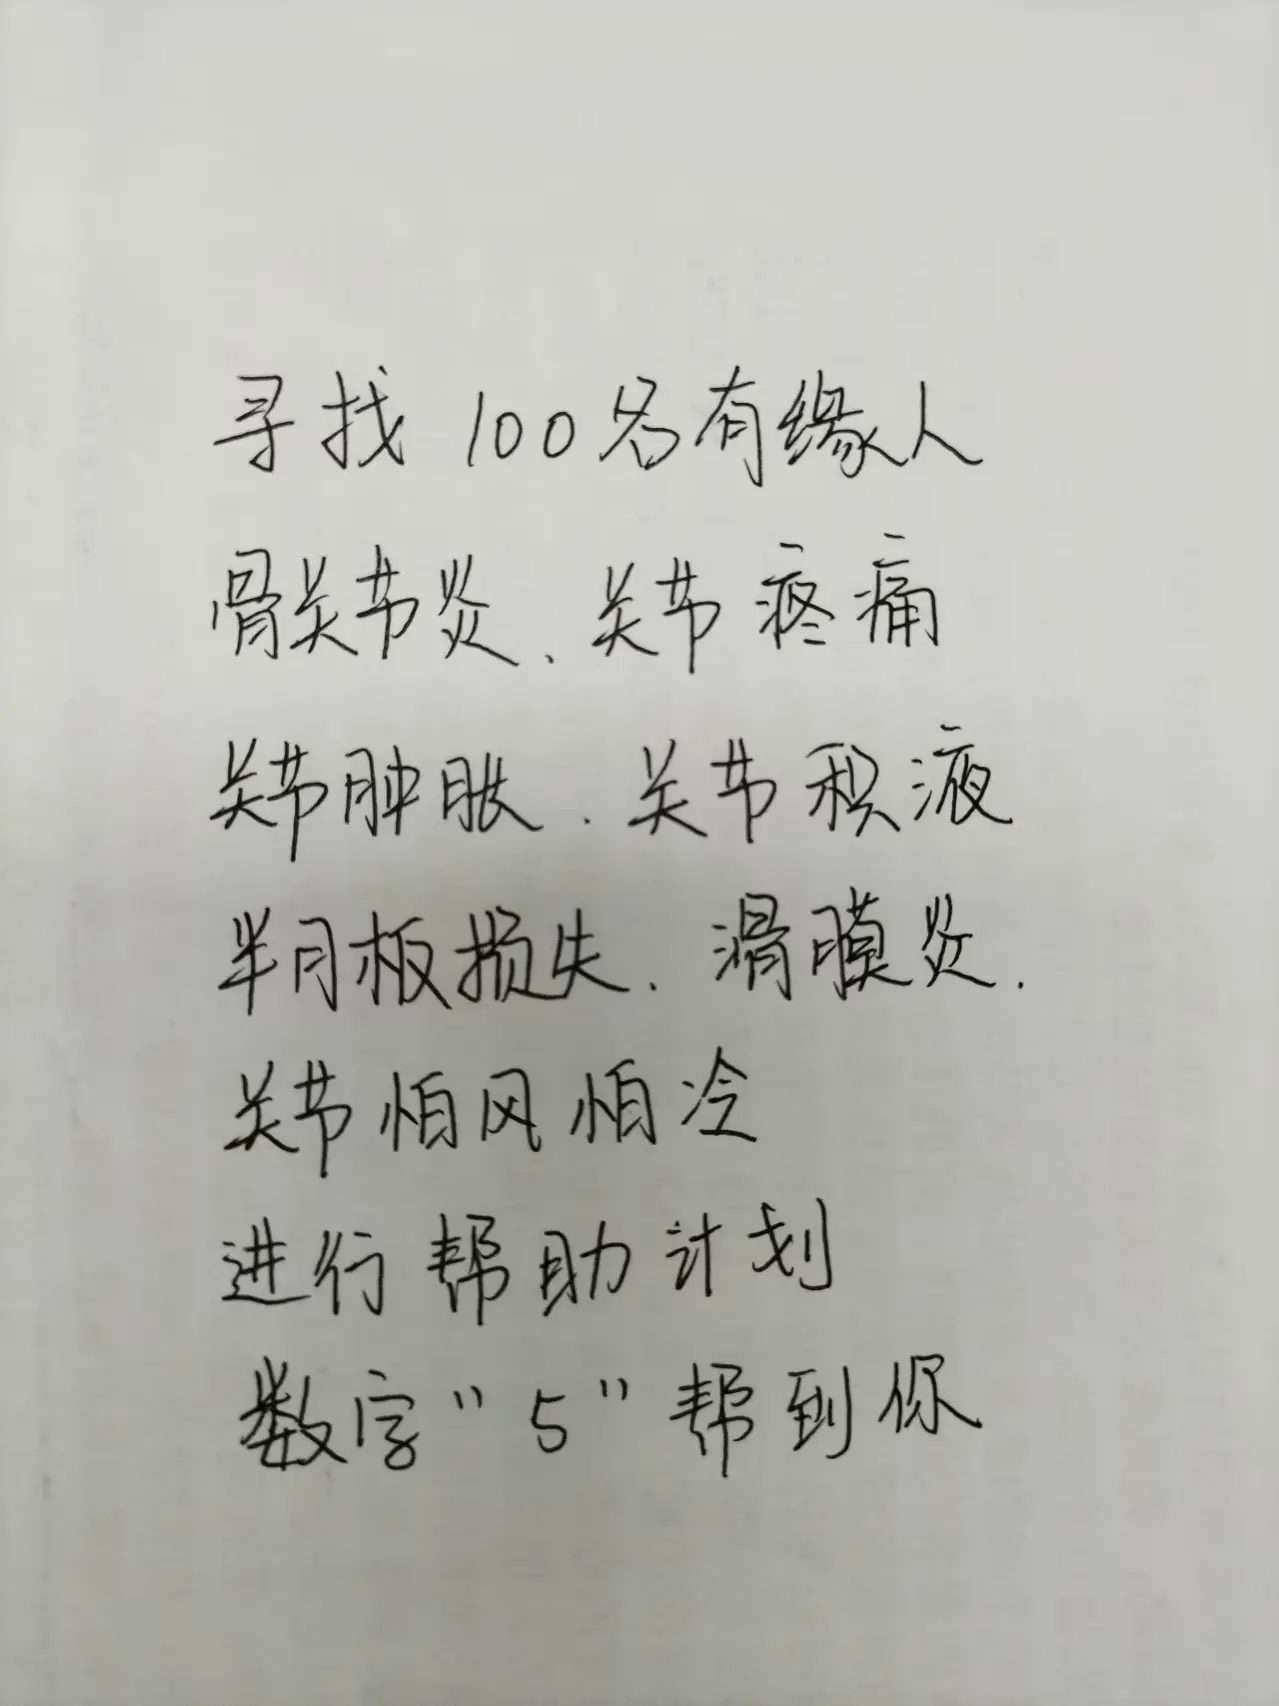 寻找100名有缘人
骨关节炎、关节疼痛
关节肿胀、关节积液
半月板损失、滑膜炎.
关节怕风怕冷
进行帮助计划
数字"5"帮到你